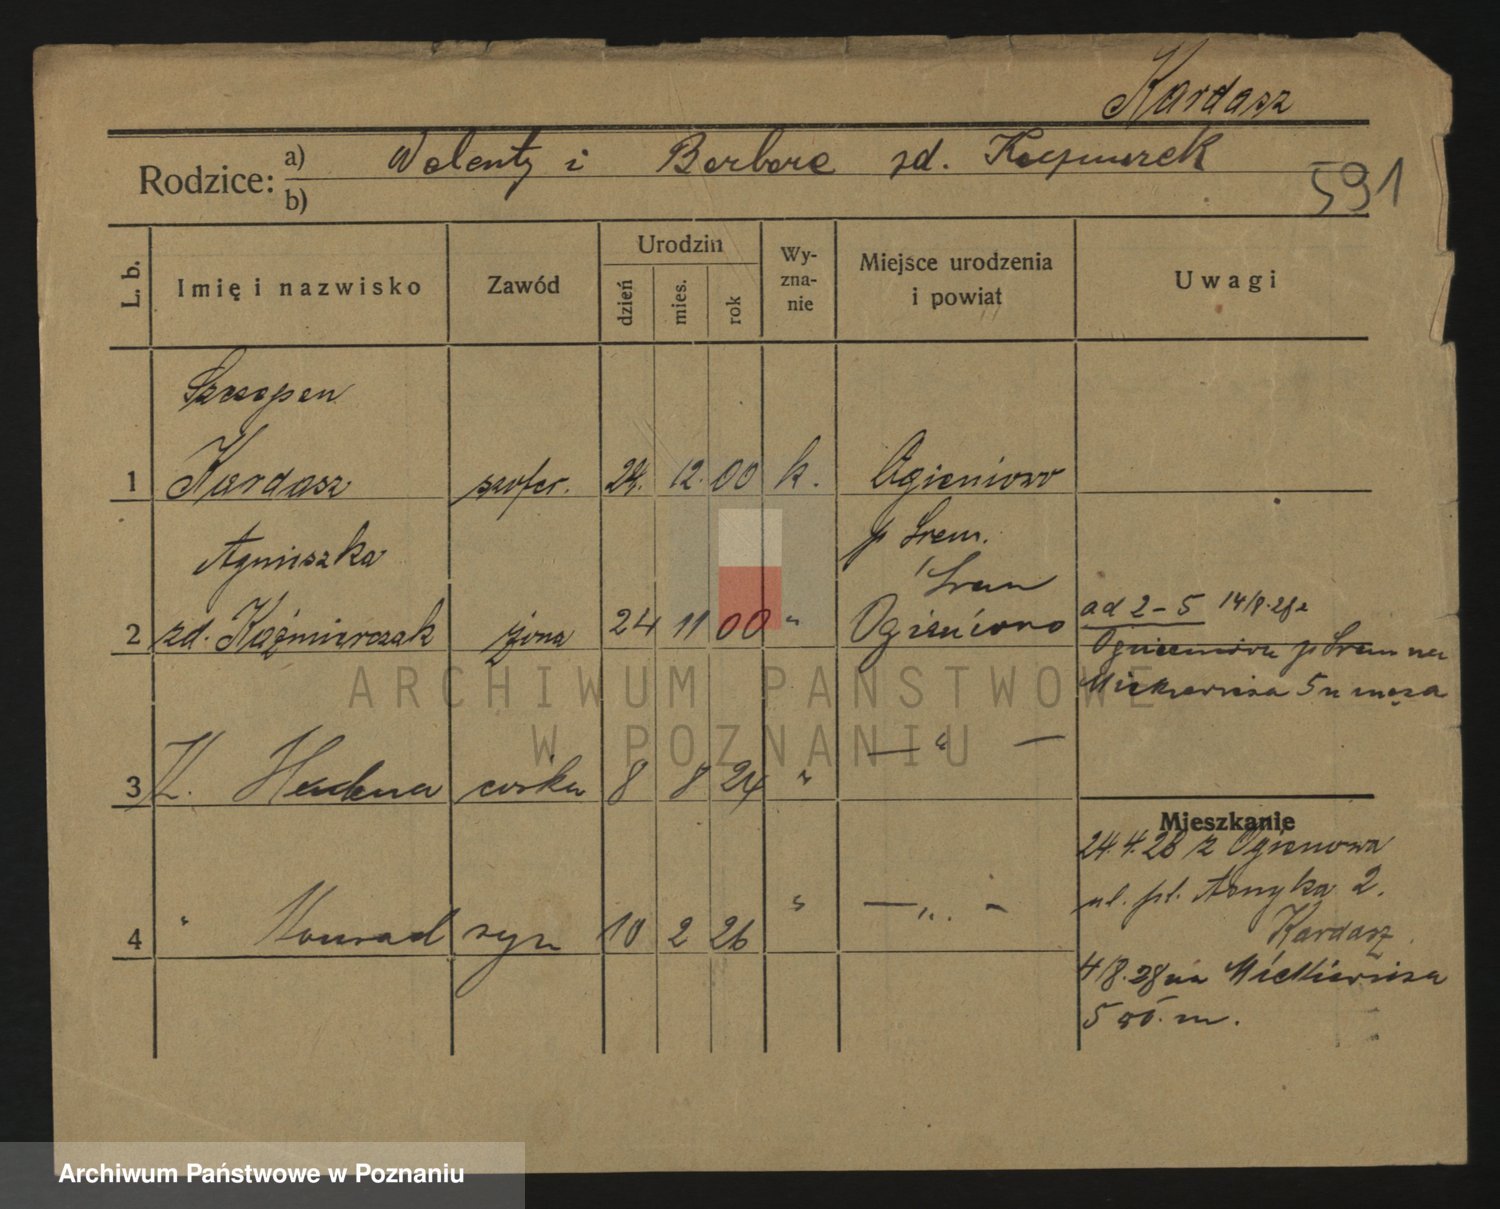 Kardasz
Rodzice: a) Walenty i Barbara zd. Kacpurzek
b)
591
L. b.
Imię i nazwisko
Zawód
Urodzin
dzień
mies.
rok
Wy-
zna-
nie
Miejsce urodzenia
i powiat
Uwagi
Szczepan
1 Kardasz szofer. 24. 12. 00 k. Ogieniowo
p Śrem.
Agnieszka
Śrem
2 zd. Kaźmierczak żona 24 11 00 " Ogieniowo
ad 2-5 14/8.28 z
Ogieniowa p Śrem na
Mickiewicza 5 u męża
3 K. Helena córka 8 8 24 " — " —
4 " Konrad syn 10 2 26 " — " —
Mieszkanie
24.4.28 z Ogienowa
ul. pl. Asnyka 2.
Kardasz
4/8.28 na Mickiewicza
5 m.
ARCHIWUM PAŃSTWOWE
W POZNANIU
Archiwum Państwowe w Poznaniu